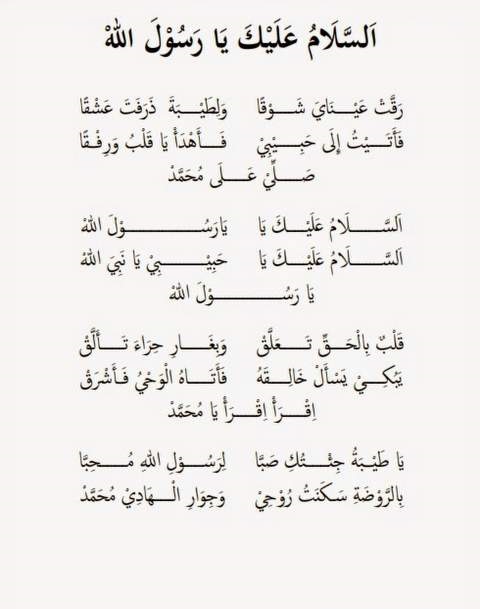 اَلسَّلَامُ عَلَيْكَ يَا رَسُوْلَ اللهْ
رَقَّتْ عَيْنَايَ شَوْقًا وَلِطَيْبَةَ ذَرَفَتْ عَشْقًا
فَأَتَيْتُ إِلَى حَبِيْبِيْ فَأَهْدَأْ يَا قَلْبُ وَرِفْقًا
صَلِّيْ عَلَى مُحَمَّدْ
اَلسَّلَامُ عَلَيْكَ يَا يَارَسُوْلَ اللهْ
اَلسَّلَامُ عَلَيْكَ يَا حَبِيْبِيْ يَا نَبِيَ اللهْ
يَا رَسُوْلَ اللهْ
قَلْبٌ بِالْحَقِّ تَعَلَّقْ وَبِغَارِ حِرَاءَ تَأَلَّقْ
يَبْكِيْ يَسْأَلْ خَالِقَهُ فَأَتَاهُ الْوَحْيُ فَأَشْرَقْ
اِقْرَأْ اِقْرَأْ يَا مُحَمَّدْ
يَا طَيْبَةُ جِئْتُكِ صَبًّا لِرَسُوْلِ اللهِ مُحِبًّا
بِالرَّوْضَةِ سَكَنَتْ رُوْحِيْ وَجِوَارِ الْهَادِيْ مُحَمَّدْ